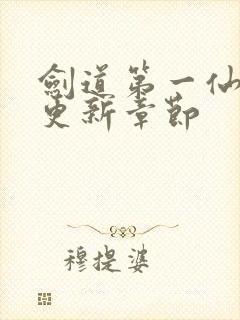 劍道第一仙
更新章節
穆提婆